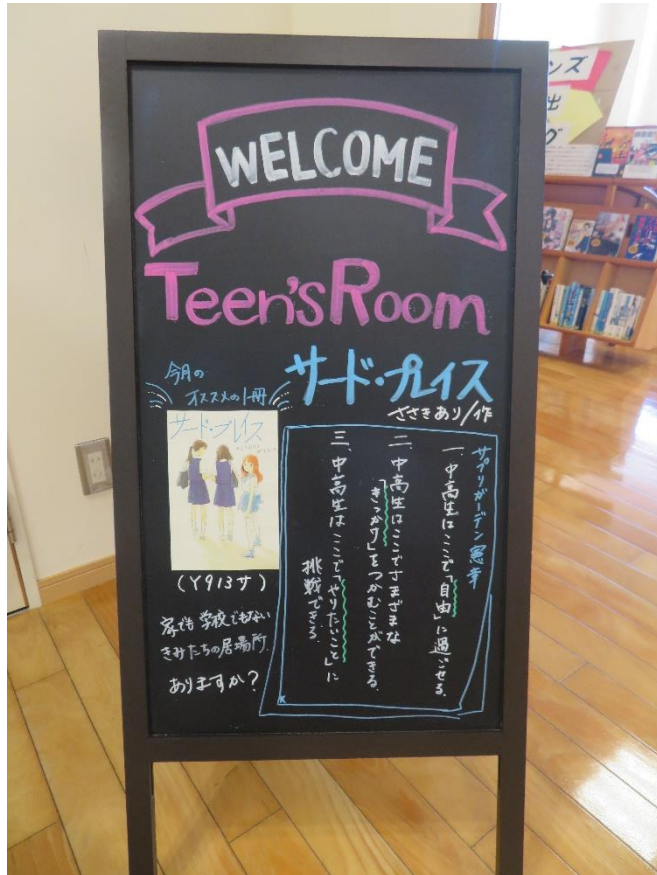 WELCOME
Teen'sRoom
今月の
オススメの1冊
サード・プレイス
ささきあり/作
サード・プレイス
(Y913サ)
家でも学校でもない
きみたちの居場所
ありますか?
サプリガーデン憲章
一、中高生はここで「自由」に過ごせる。
二、中高生はここでさまざまな
「きっかけ」をつかむことができる。
三、中高生はここで「やりたいこと」に
挑戦できる。
ンズ
出
グ